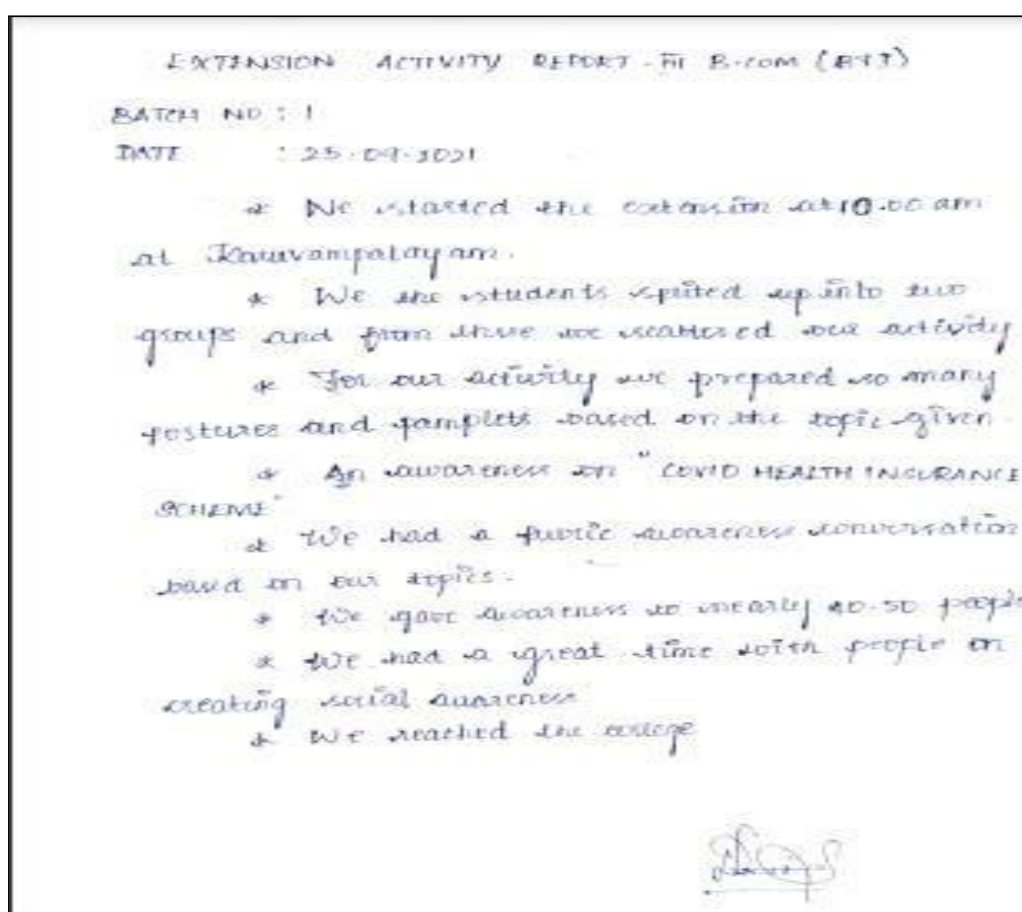 EXTENSION ACTIVITY REPORT - III B.COM (B&I)
BATCH NO : 1
DATE : 25.09.2021
* We started the extension at 10.00 am
at Karuvampalayam.
* We the students splited up into two
groups and from there we scattered our activity
* For our activity we prepared so many
postures and pamplets based on the topic given.
* An awareness on "COVID HEALTH INSURANCE
SCHEME"
* We had a public awareness conversation
based on our topics.
* We gave awareness to nearly 40-50 people
* We had a great time with people on
creating social awareness
* We reached the college